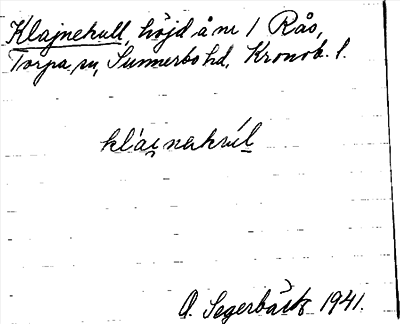 Klajnekull, höjd å nr 1 Rås,
Torpa sn, Sunnerbo hd, Kronob. l.
O. Segerbäck 1941.